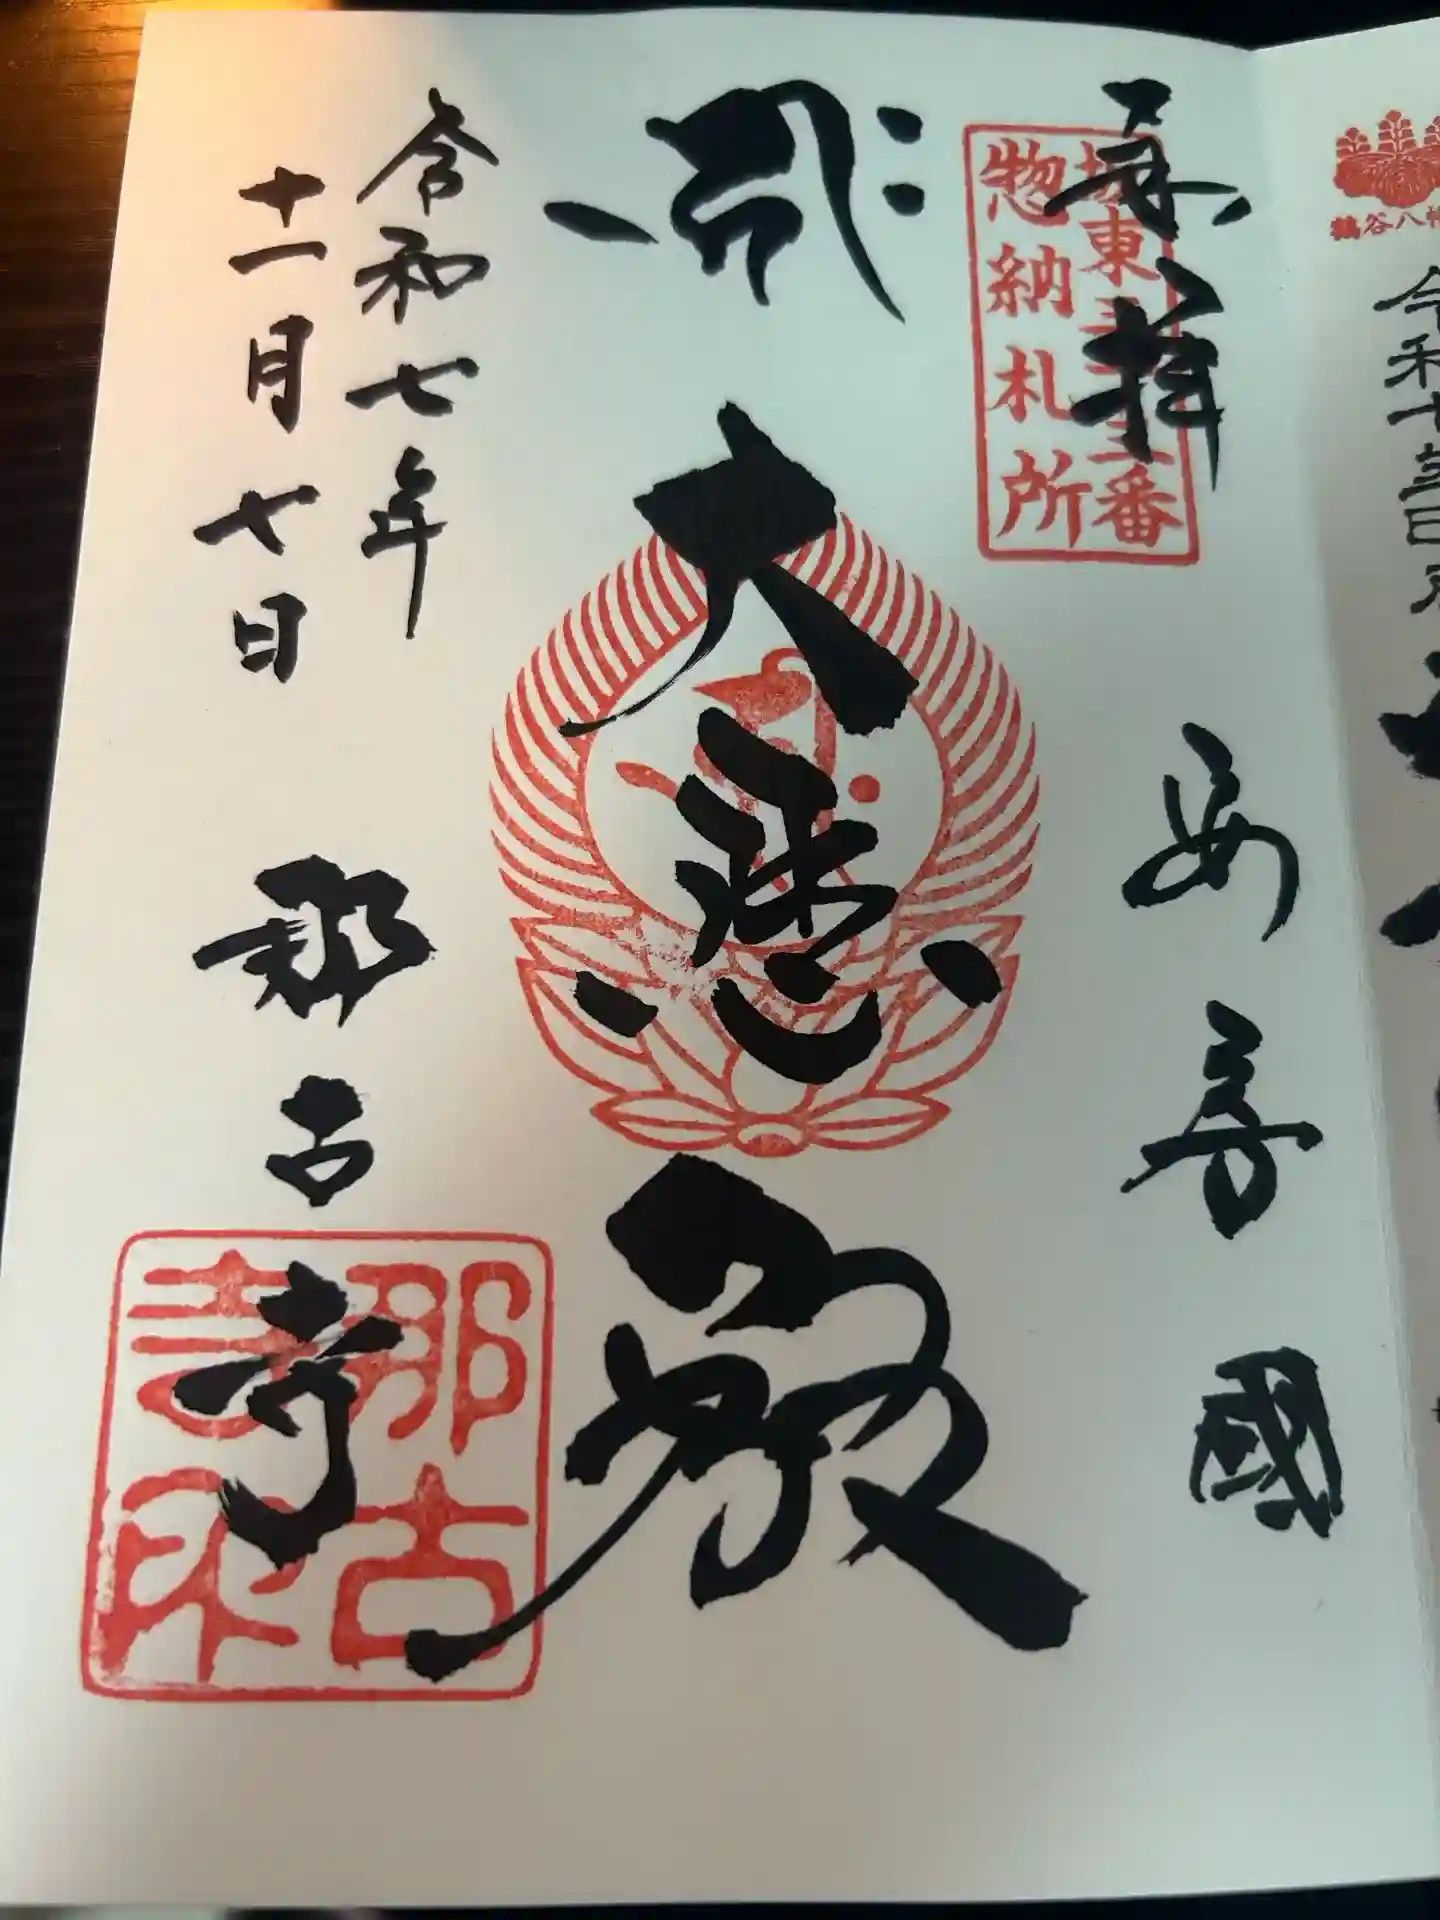 奉拝
坂東三十三番
惣納札所
安房國
大悲殿
令和七年
十一月七日
那古寺
那古
寺印
鶴谷八幡